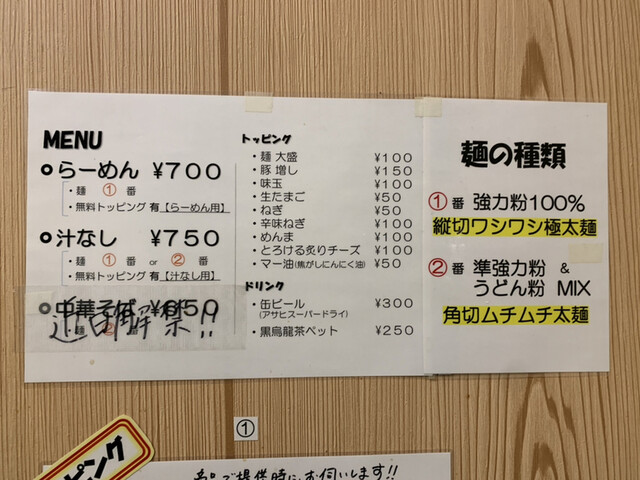 MENU
らーめん ¥700
・麺 ① 番
・無料トッピング 有【らーめん用】
汁なし ¥750
・麺 ① 番 or ② 番
・無料トッピング 有【汁なし用】
中華そば ¥650
近日解禁!!
・麺 ② 番
トッピング
・麺 大盛 ¥100
・豚 増し ¥150
・味玉 ¥100
・生たまご ¥50
・ねぎ ¥50
・辛味ねぎ ¥100
・めんま ¥100
・とろける炙りチーズ ¥100
・マー油(焦がしにんにく油) ¥50
ドリンク
・缶ビール ¥300
(アサヒスーパードライ)
・黒烏龍茶ペット ¥250
麺の種類
① 番 強力粉100%
縦切ワシワシ極太麺
② 番 準強力粉 &
うどん粉 MIX
角切ムチムチ太麺
①
ピング
で提供時にお伺いします!!